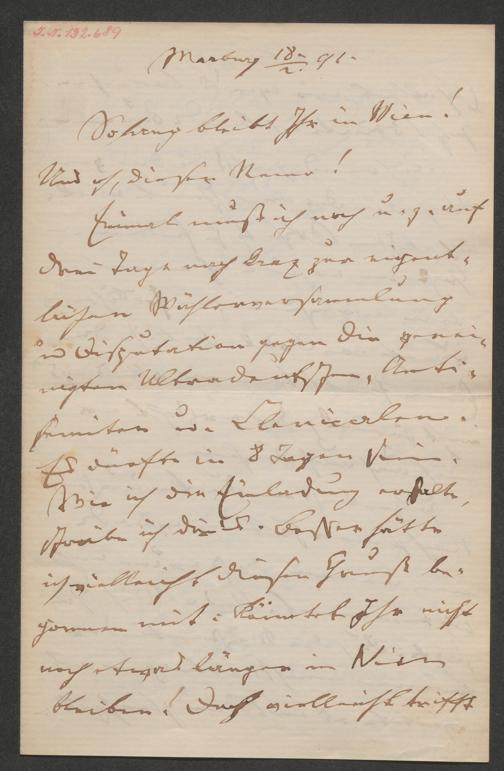 J.N. 132.689
Marburg 18/2. 91.
Solang bleibt Ihr in Wien!
Und ich, dieser Name!
Einmal muß ich noch u. z. auf
drei Tage nach Graz zur eigent-
lichen Wählerversammlung
u Disputation gegen die verei-
nigten Ultradeutschen, Anti-
semiten u. Clericalen.
Es dürfte in 8 Tagen sein.
Wie ich die Einladung erhalte,
schreibe ich die . Besser hätte
ich vielleicht diesen Gruß be-
gonnen mit: Könntet Ihr nicht
noch etwas länger in Wien
bleiben! Doch vielleicht trifft